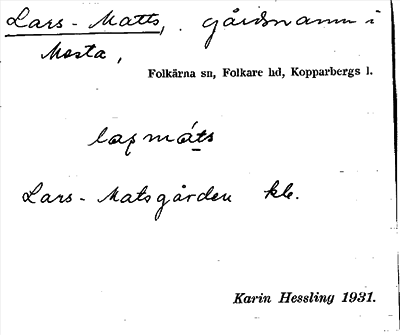 Lars-Matts, gårdsnamn i
Mosta,
Folkärna sn, Folkare hd, Kopparbergs l.
Lars-Matsgården kb.
Karin Hessling 1931.